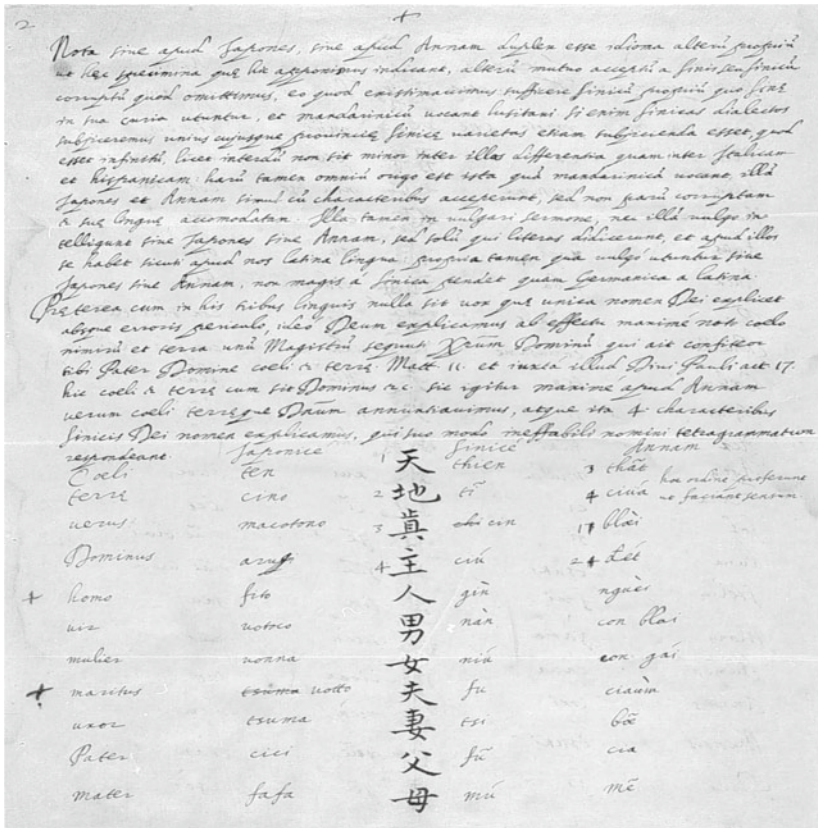 2 +
Nota siue apud Japones, siue apud Annam duplex esse idioma alterũ propriũ
ut hęc specimina quę hic apponimus indicant, alterũ mutuo acceptũ a sinis seu sinicũ
corruptũ quod omittimus, eo quod existimauimus sufficere sinicũ propriũ quo sinę
in sua curia utuntur, et mandarinicũ uocant lusitani si enim sinicas dialectos
subjiceremus unius cujusque prouincię sinicę varietas etiam subjicienda esset, quod
esset infinitũ, licet interdũ non sit minor inter illas differentia quam inter Italicam
et hispanicam. harũ tamen omniũ origo est ista quã mandarinicã uocant, illã
Japones et Annam simul cũ characteribus acceperunt, sed non parũ corruptam
& suę linguę accomodatam. Illa tamen in uulgari sermone, nec illã uulgo in
telligunt siue Japones siue Annam, sed solũ qui literas didicerunt, et apud illos
se habet sicuti apud nos latina lingua. propria tamen quã uulgò utuntur siue
Japones siue Annam, non magis à sinica pendet quam Germanica a latina.
Pręterea cum in his tribus linguis nulla sit vox quę unica nomen Dei explicet
absque erroris periculo, ideo Deum explicamus ab effectu maximè noti coelo
nimirũ et terra unũ Magistrũ sequuti Xp̃rum Dominũ qui ait confiteor
tibi Pater Domine coeli & terrę. Matt. 11. et iuxta illud Diui Pauli act 17.
hic coeli & terrę cum sit Dominus &c. sic igitur maxime apud Annam
uerum coeli terręque Dñum annuntiauimus, atque ita 4. characteribus
sinicis Dei nomen explicamus, qui suo modo ineffabili nomini tetragrammaton
respondeant. Japonice Sinicè Annam
Coeli ten 1 天 thien 3 thãt
terrę cino 2 地 tí 4 ciúa hoc ordine proferunt ut faciant sensum.
uerus macotono 3 眞 cin 1 blœ̀i
Dominus 4 主 ciú 2 đét
+ homo fito 人 gin ngũèi
uir votoco 男 nàn con blai
mulier vonna 女 niú con gái
+ maritus tsuma votto 夫 fu
uxor tsuma 妻 tsi
Pater cici 父 fũ cia
mater fafa 母 mú mẽ